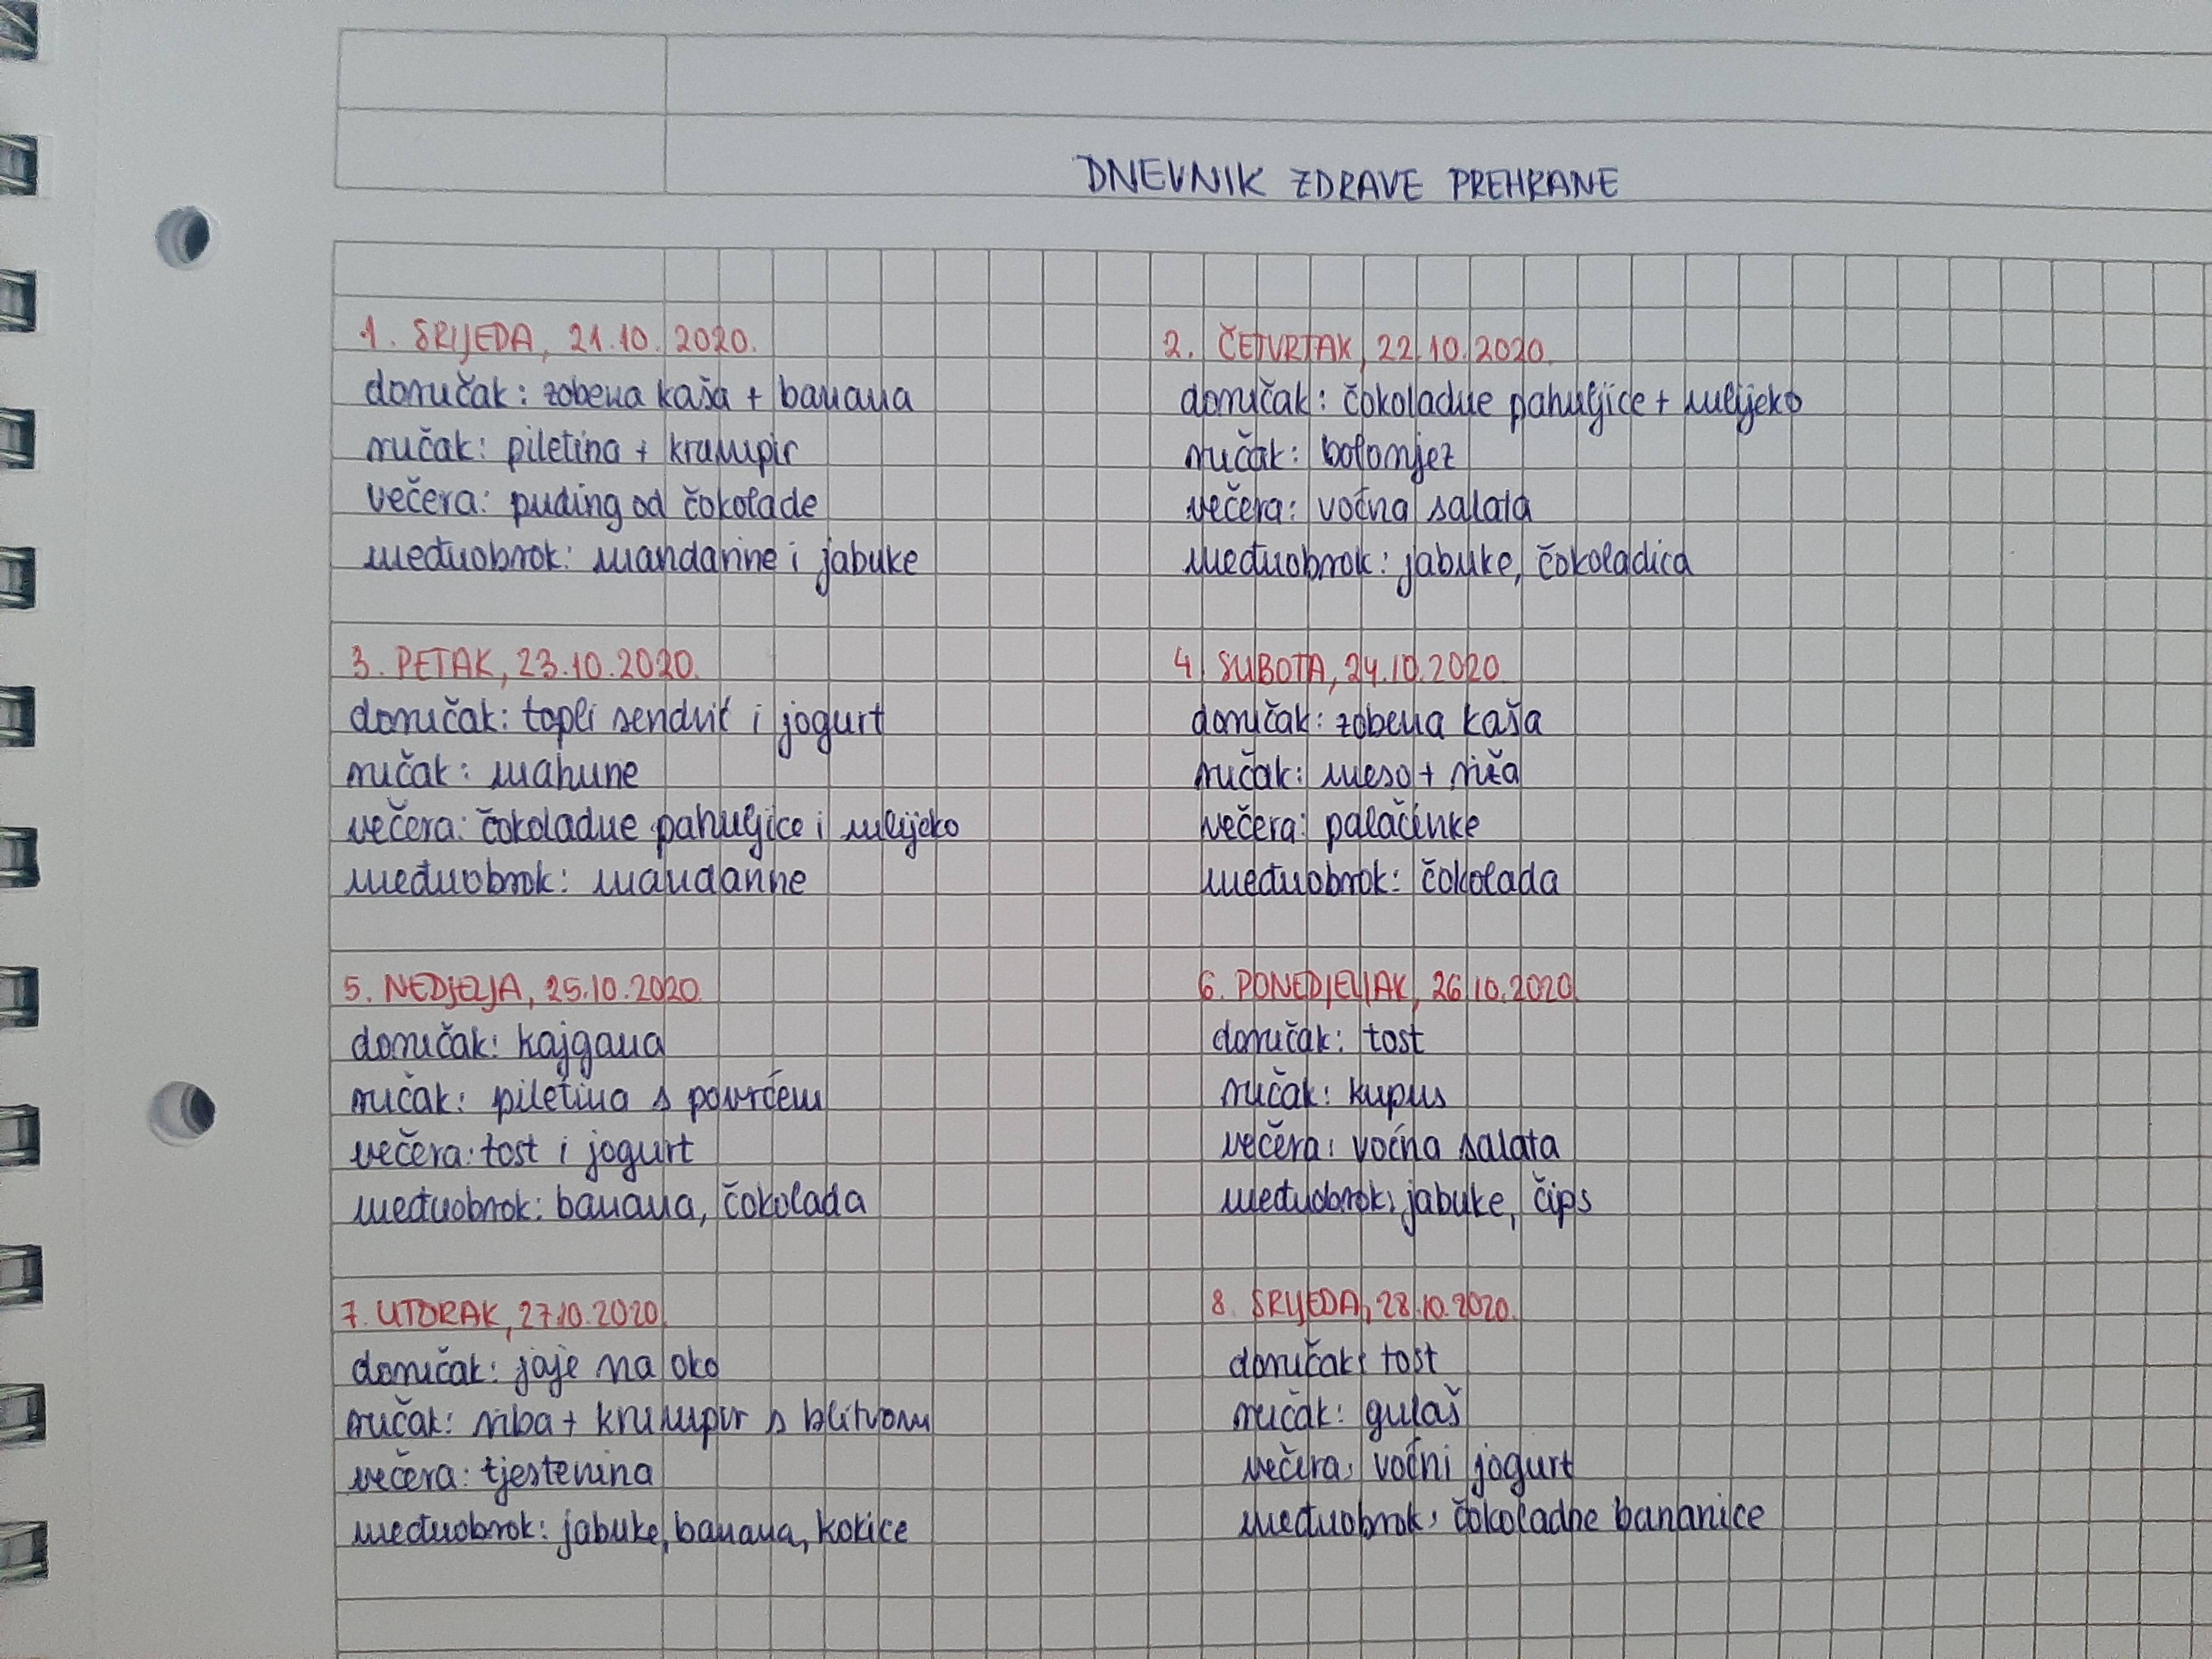 DNEVNIK ZDRAVE PREHRANE
1. SRIJEDA, 21.10.2020.
doručak: zobena kaša + banana
ručak: piletina + krumpir
večera: puding od čokolade
međuobrok: mandarine i jabuke
2. ČETVRTAK, 22.10.2020.
doručak: čokoladne pahuljice + mlijeko
ručak: bolonjez
večera: voćna salata
međuobrok: jabuke, čokoladica
3. PETAK, 23.10.2020.
doručak: topli sendvić i jogurt
ručak: mahune
večera: čokoladne pahuljice i mlijeko
međuobrok: mandarine
4. SUBOTA, 24.10.2020
doručak: zobena kaša
ručak: meso + riža
večera: palačinke
međuobrok: čokolada
5. NEDJELJA, 25.10.2020.
doručak: kajgana
ručak: piletina s povrćem
večera: tost i jogurt
međuobrok: banana, čokolada
6. PONEDJELJAK, 26.10.2020.
doručak: tost
ručak: kupus
večera: voćna salata
međuobrok: jabuke, čips
7. UTORAK, 27.10.2020.
doručak: jaje na oko
ručak: riba + krumpir s blitvom
večera: tjestenina
međuobrok: jabuke, banana, kokice
8. SRIJEDA, 28.10.2020.
doručak: tost
ručak: gulaš
večera: voćni jogurt
međuobrok: čokoladne bananice